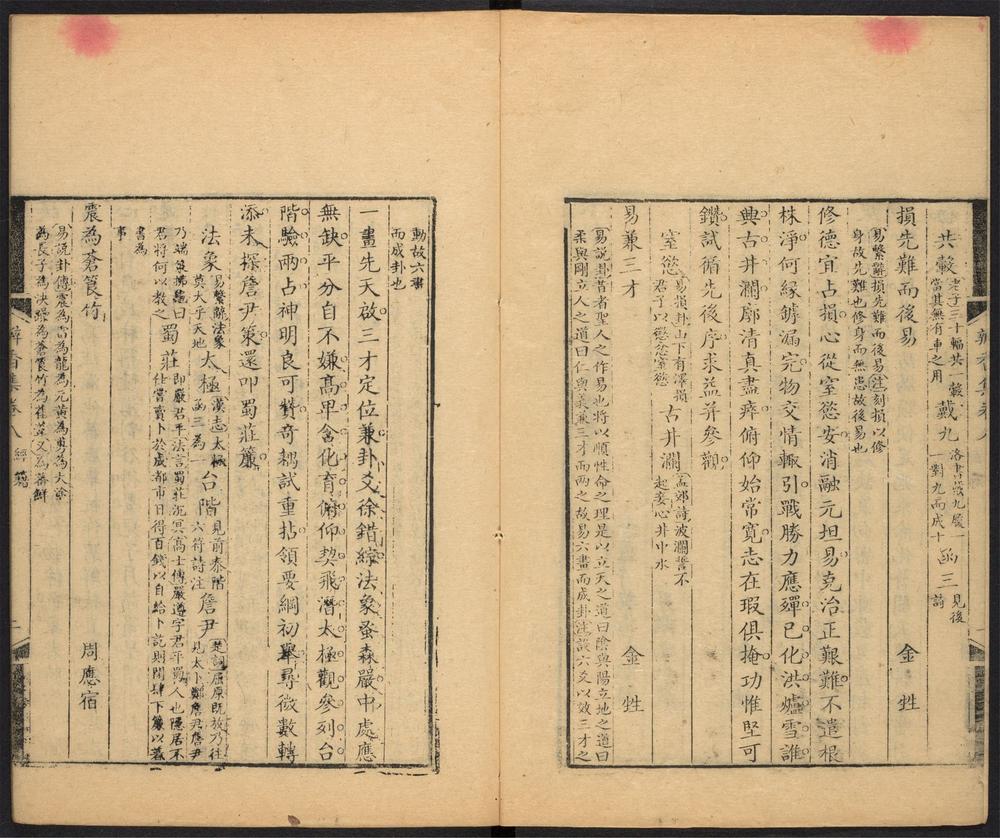 共轂 老子三十輻共一轂當其無有車之用 戴九 洛書戴九履一一對九而成十 函三 見後詩
損先難而後易 金甡
易繫辭損先難而後易注刻損以修身故先難也修身而無患故後易也
修德宜占損心從窒慾安消融元坦易克治正艱難不遣根
株淨何緣罅漏完物交情輒引戰勝力應殫已化洪爐雪誰
興古井瀾廓清真盡瘁俯仰始常寬志在瑕俱掩功惟堅可
鑽試循先後序求益并參觀
窒慾 易損卦山下有澤損君子以懲忿窒慾 古井瀾 孟郊詩波瀾誓不起妾心井中水
易兼三才 金甡
易說卦昔者聖人之作易也將以順性命之理是以立天之道曰陰與陽立地之道曰
柔與剛立人之道曰仁與義兼三才而兩之故易六畫而成卦注設六爻以效三才之
動故六畫而成卦也
一畫先天啟三才定位兼卦爻徐錯綜法象蚤森嚴中處應
無缺平分自不嫌高卑含化育俯仰契飛潛太極觀參列台
階驗兩占神明良可贊奇耦試重拈領要綱初舉尋微數轉
添未探詹尹策還叩蜀莊簾
法象 易繫辭法象莫大乎天地 太極 漢志太極函三為一 台階 見前泰階六符詩注 詹尹 楚詞屈原既放乃往見太卜鄭詹尹詹尹
乃端策拂龜曰君將何以教之 蜀莊 即嚴君平法言蜀莊沉冥高士傳嚴遵字君平蜀人也隱居不仕嘗賣卜於成都市日得百錢以自給卜訖則閉肆下簾以著
書為事
震為蒼筤竹 周應宿
易說卦傳震為雷為龍為元黃為旉為大塗
為長子為決躁為蒼筤竹為萑葦又為蕃鮮
卷八 經籍